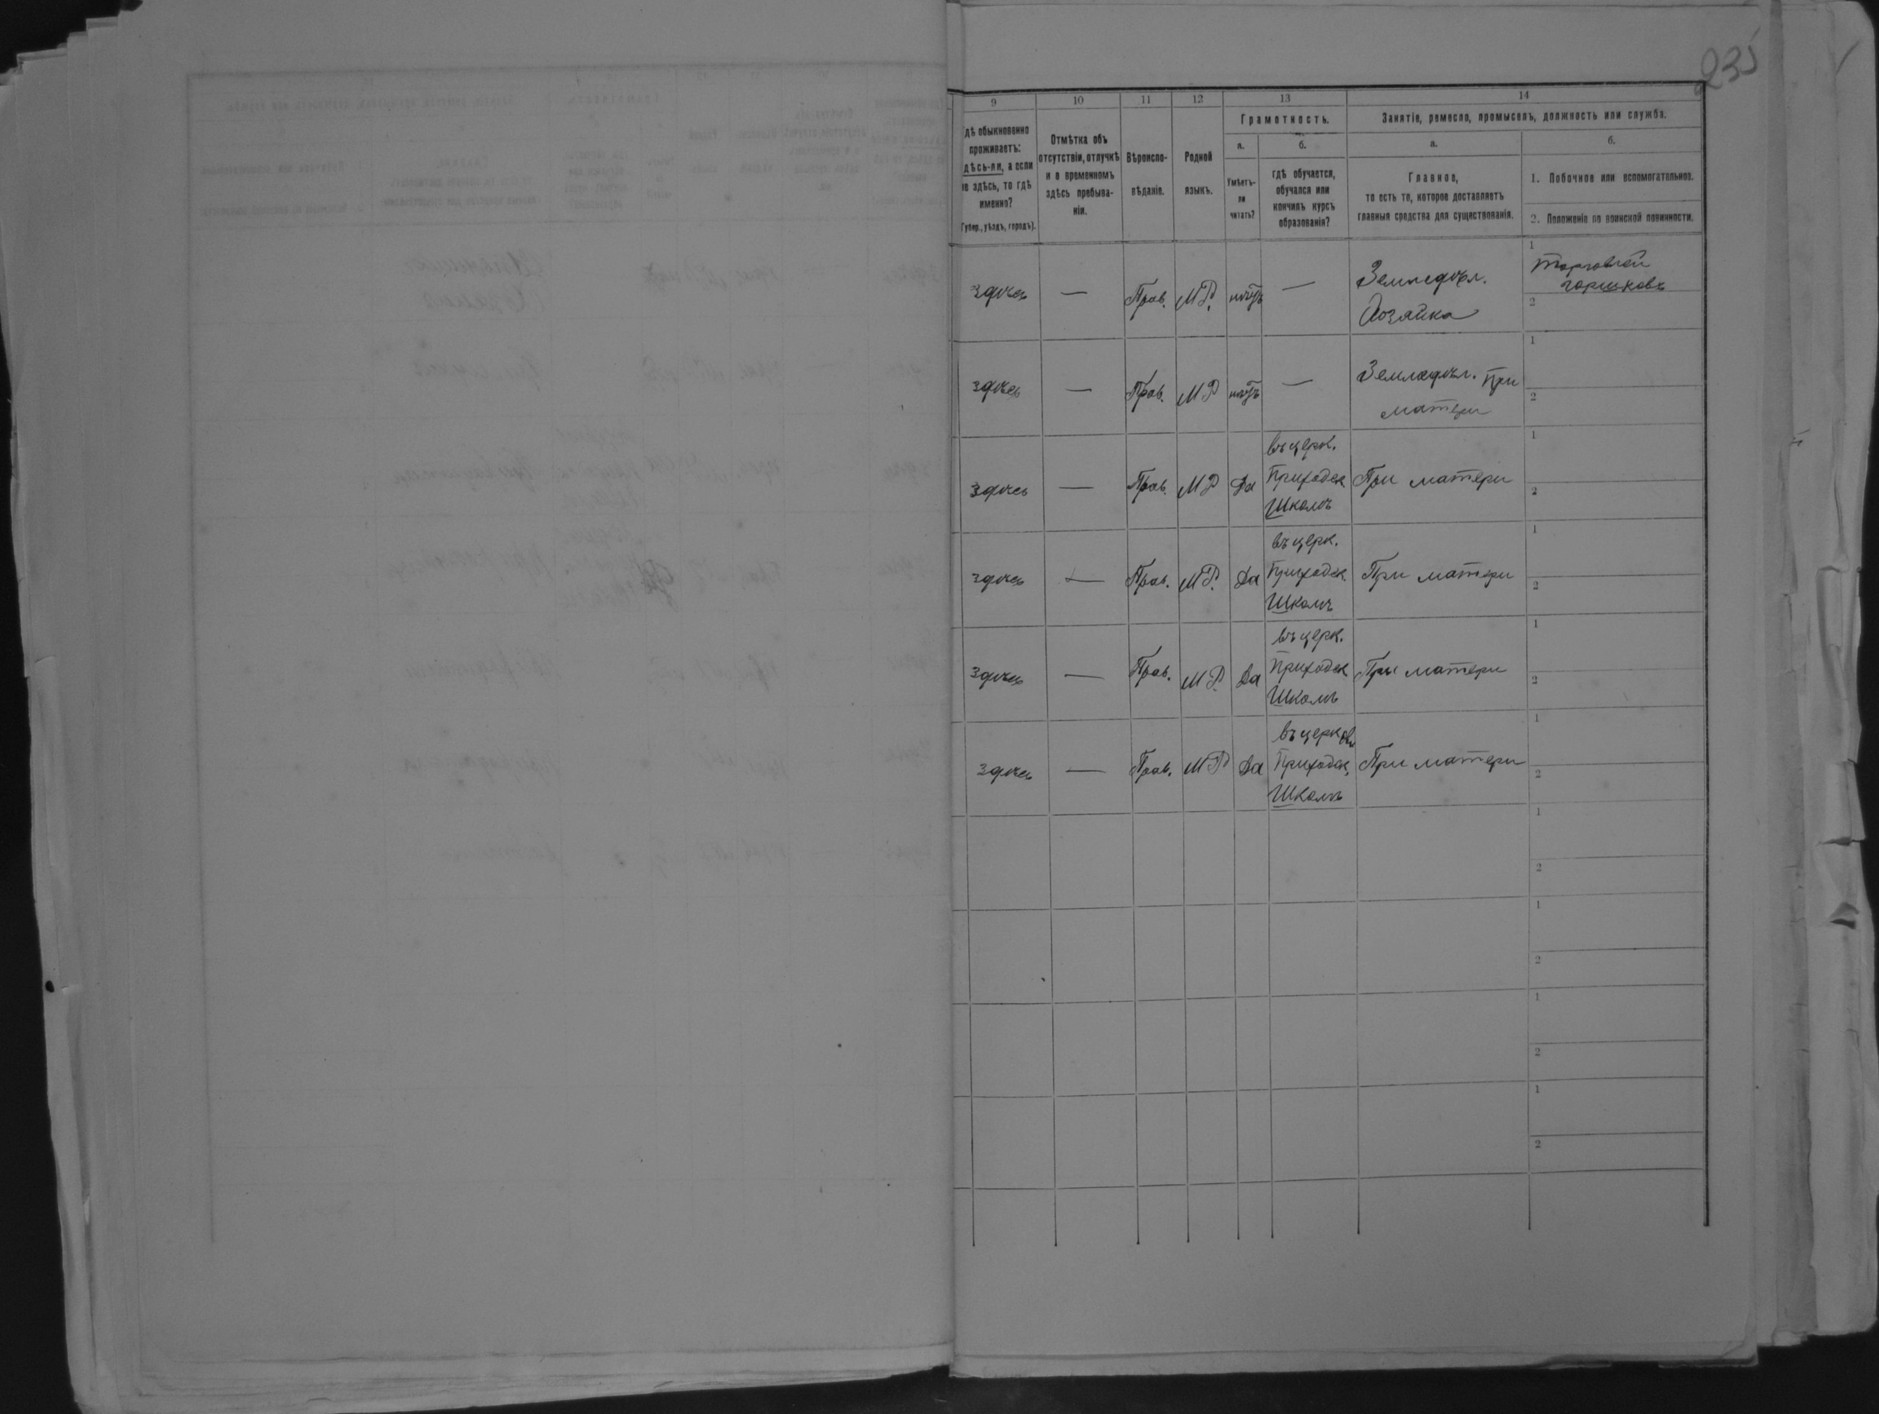 235
9 10 11 12 13 14
дѣ обыкновенно
проживаетъ:
дѣсь-ли, а если
не здѣсь, то гдѣ
именно?
(Губер., уѣздъ, городъ).
Отмѣтка объ
отсутствіи, отлучкѣ
и о временномъ
здѣсь пребыва-
ніи.
Вѣроиспо-
вѣданіе.
Родной
языкъ.
Грамотность.
а.
Умѣетъ-
ли
читать?
б.
гдѣ обучается,
обучался или
кончилъ курсъ
образованія?
Занятіе, ремесло, промыселъ, должность или служба.
а.
Главное,
то есть то, которое доставляетъ
главныя средства для существованія.
б.
1. Побочное или вспомогательное.
2. Положеніе по воинской повинности.
здѣсь — Прав. М.Р. нѣтъ — Земледѣл.
Хозяйка
1 Торговлей
горшковъ
2
здѣсь — Прав. МР нѣтъ — Земледѣл. При
матери
1
2
здѣсь — Прав. МР Да въ церк.
Приходск
Школѣ
При матери
1
2
здѣсь — Прав. М.Р. Да въ церк.
Приходск
Школѣ
При матери
1
2
здѣсь — Прав. М.Р. Да въ церк.
Приходск
Школѣ
При матери
1
2
здѣсь — Прав. МР Да въ церков
Приходск.
Школѣ
При матери
1
2
1
2
1
2
1
2
1
2